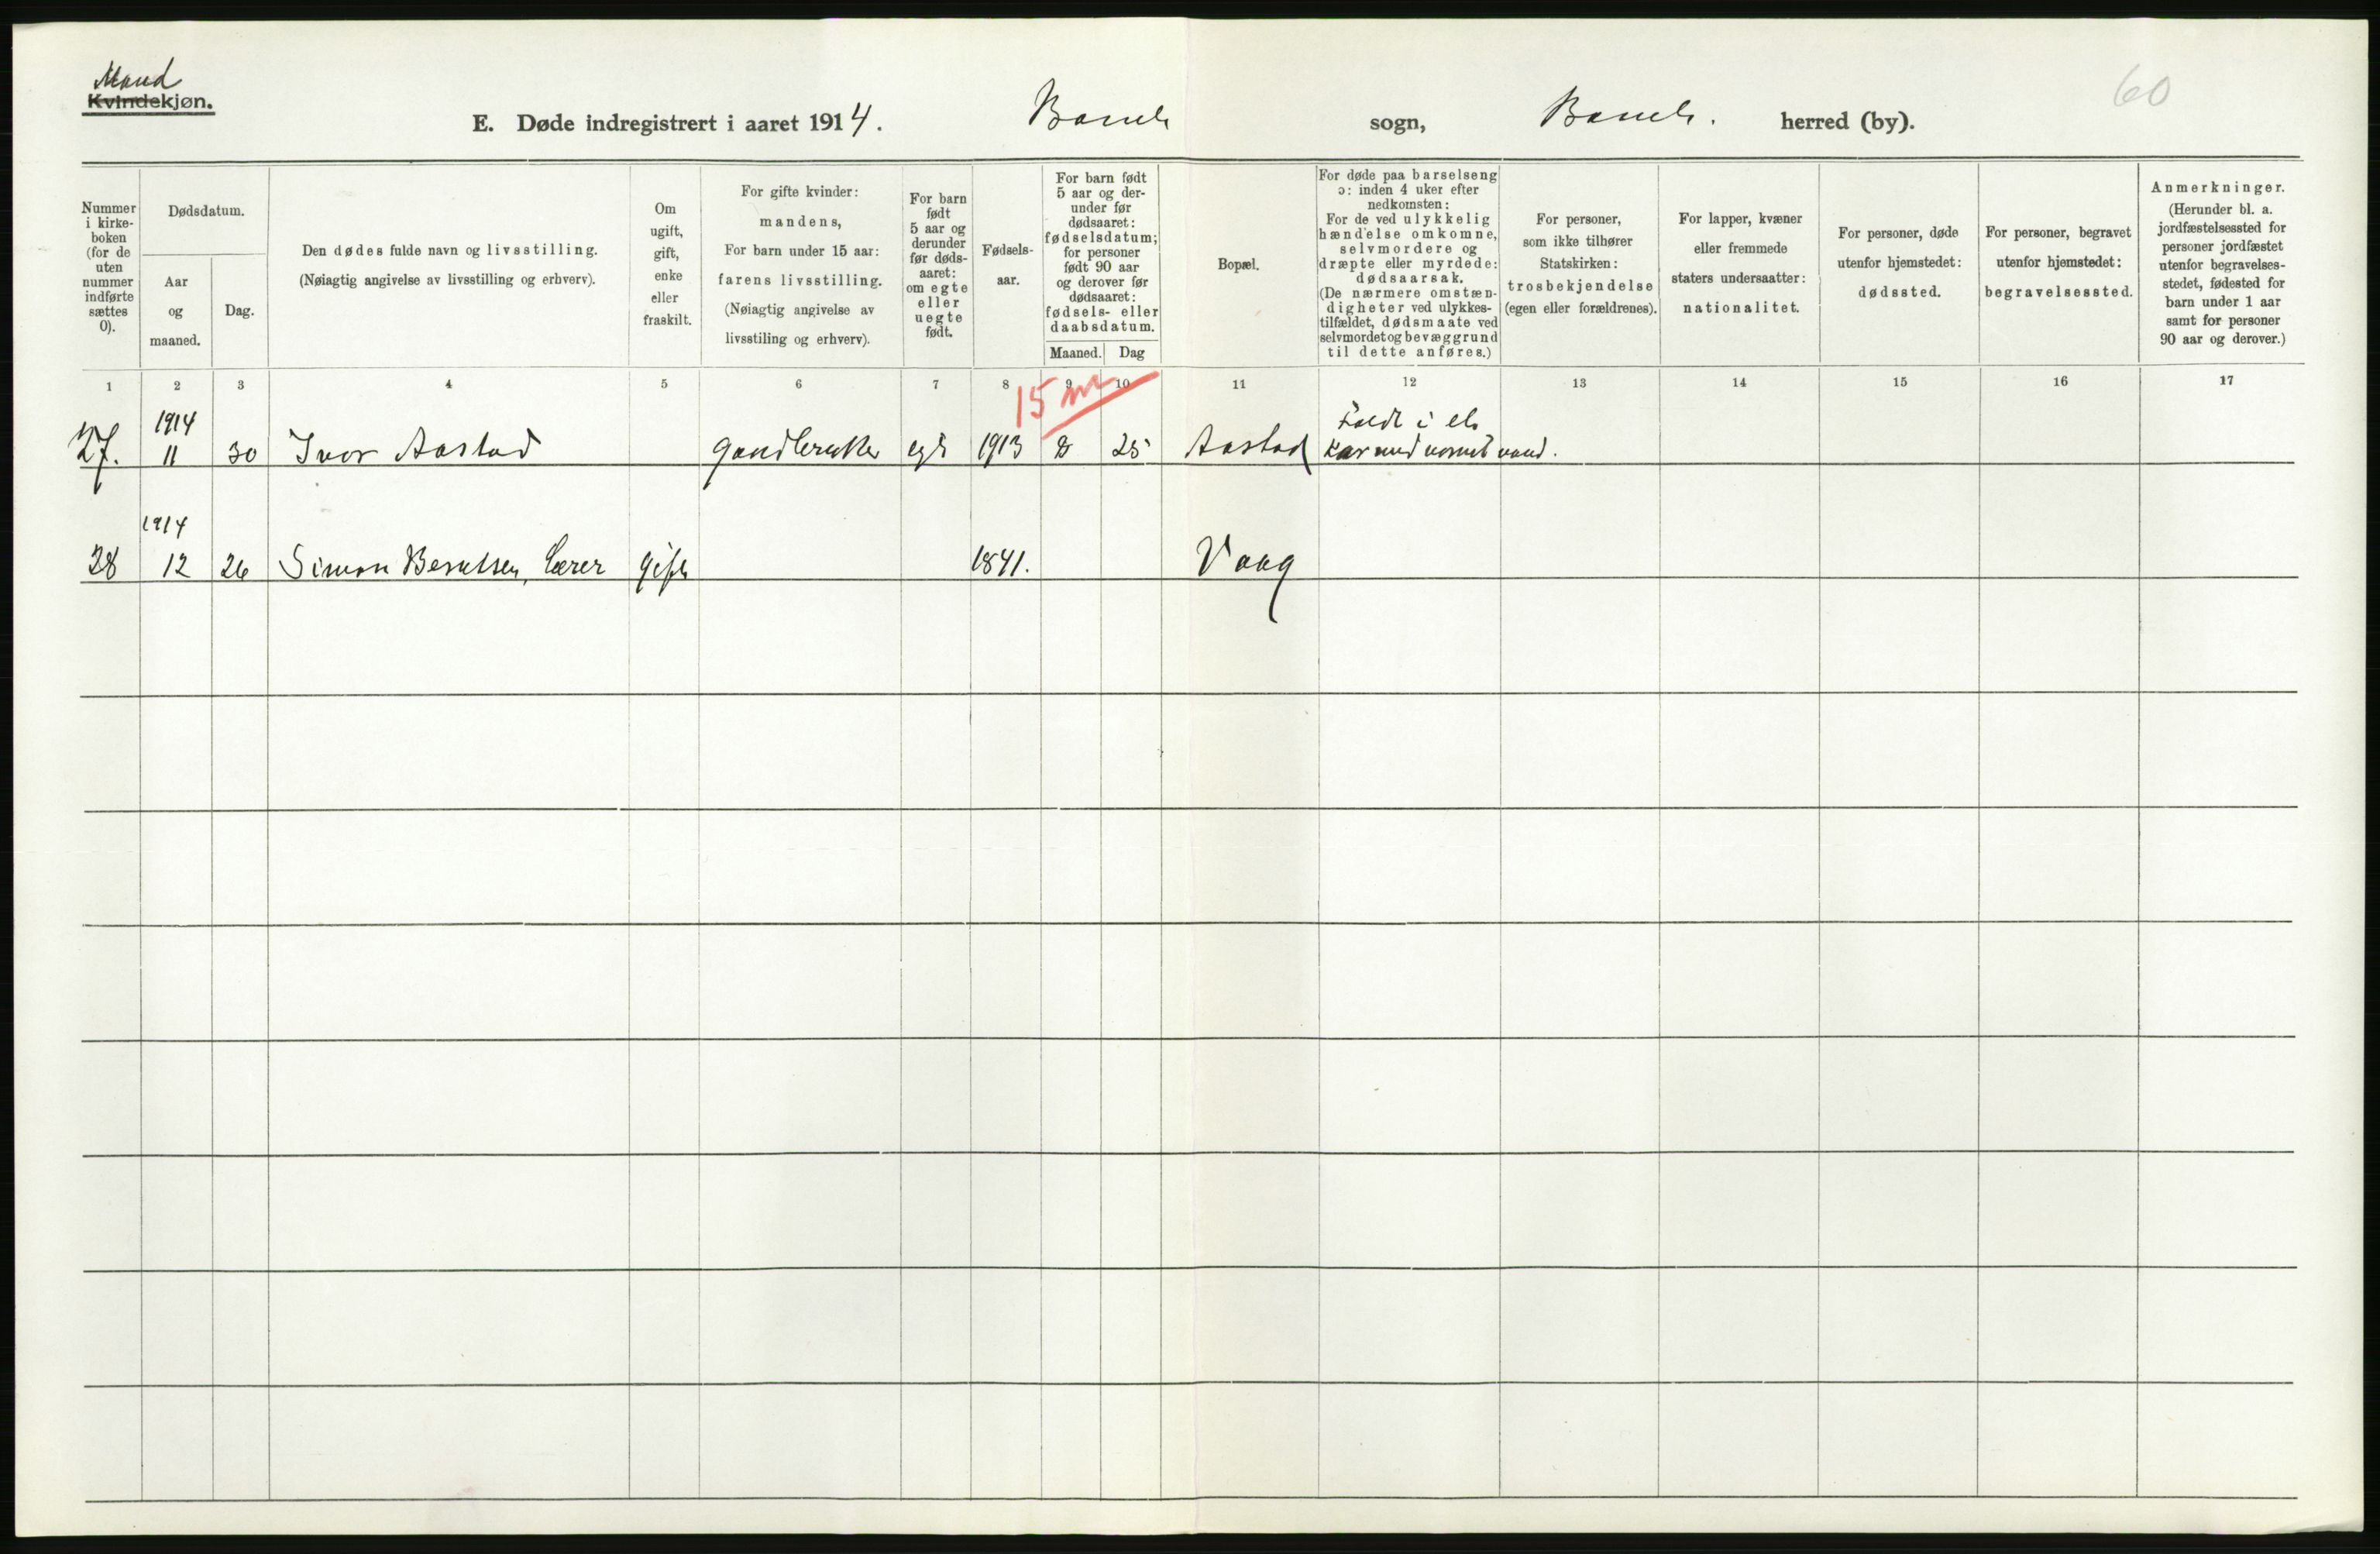 Mand
Kvindekjøn.
60
E. Døde indregistrert i aaret 1914. Bamle sogn, Bamle. herred (by).
Nummer
i kirke-
boken
(for de
uten
nummer
indførte
sættes
0).
Dødsdatum.
Aar
og
maaned.
Dag.
Den dødes fulde navn og livsstilling.
(Nøiagtig angivelse av livsstilling og erhverv).
Om
ugift,
gift,
enke
eller
fraskilt.
For gifte kvinder:
mandens,
For barn under 15 aar:
farens livsstilling.
(Nøiagtig angivelse av
livsstiling og erhverv).
For barn
født
5 aar og
derunder
før døds-
aaret:
om egte
eller
uegte
født.
Fødsels-
aar.
For barn født
5 aar og der-
under før
dødsaaret:
fødselsdatum;
for personer
født 90 aar
og derover før
dødsaaret:
fødsels- eller
daabsdatum.
Maaned. Dag
Bopæl.
For døde paa barselseng
ɔ: inden 4 uker efter
nedkomsten:
For de ved ulykkelig
hændelse omkomne,
selvmordere og
dræpte eller myrdede:
dødsaarsak.
(De nærmere omstæn-
digheter ved ulykkes-
tilfældet, dødsmaate ved
selvmordet og bevæggrund
til dette anføres.)
For personer,
som ikke tilhører
Statskirken:
trosbekjendelse
(egen eller forældrenes).
For lapper, kvæner
eller fremmede
staters undersaatter:
nationalitet.
For personer, døde
utenfor hjemstedet:
dødssted.
For personer, begravet
utenfor hjemstedet:
begravelsessted.
Anmerkninger.
(Herunder bl. a.
jordfæstelsessted for
personer jordfæstet
utenfor begravelses-
stedet, fødested for
barn under 1 aar
samt for personer
90 aar og derover.)
1 2 3 4 5 6 7 8 9 10 11 12 13 14 15 16 17
15 m
1914
Faldt i et
27. 11 30 Ivar Aastad gaardbruker egte 1913 8 25 Aastad Kar med varmt vand.
1914
28 12 26 Simon Berntsen, Lærer gift 1841. Vaag